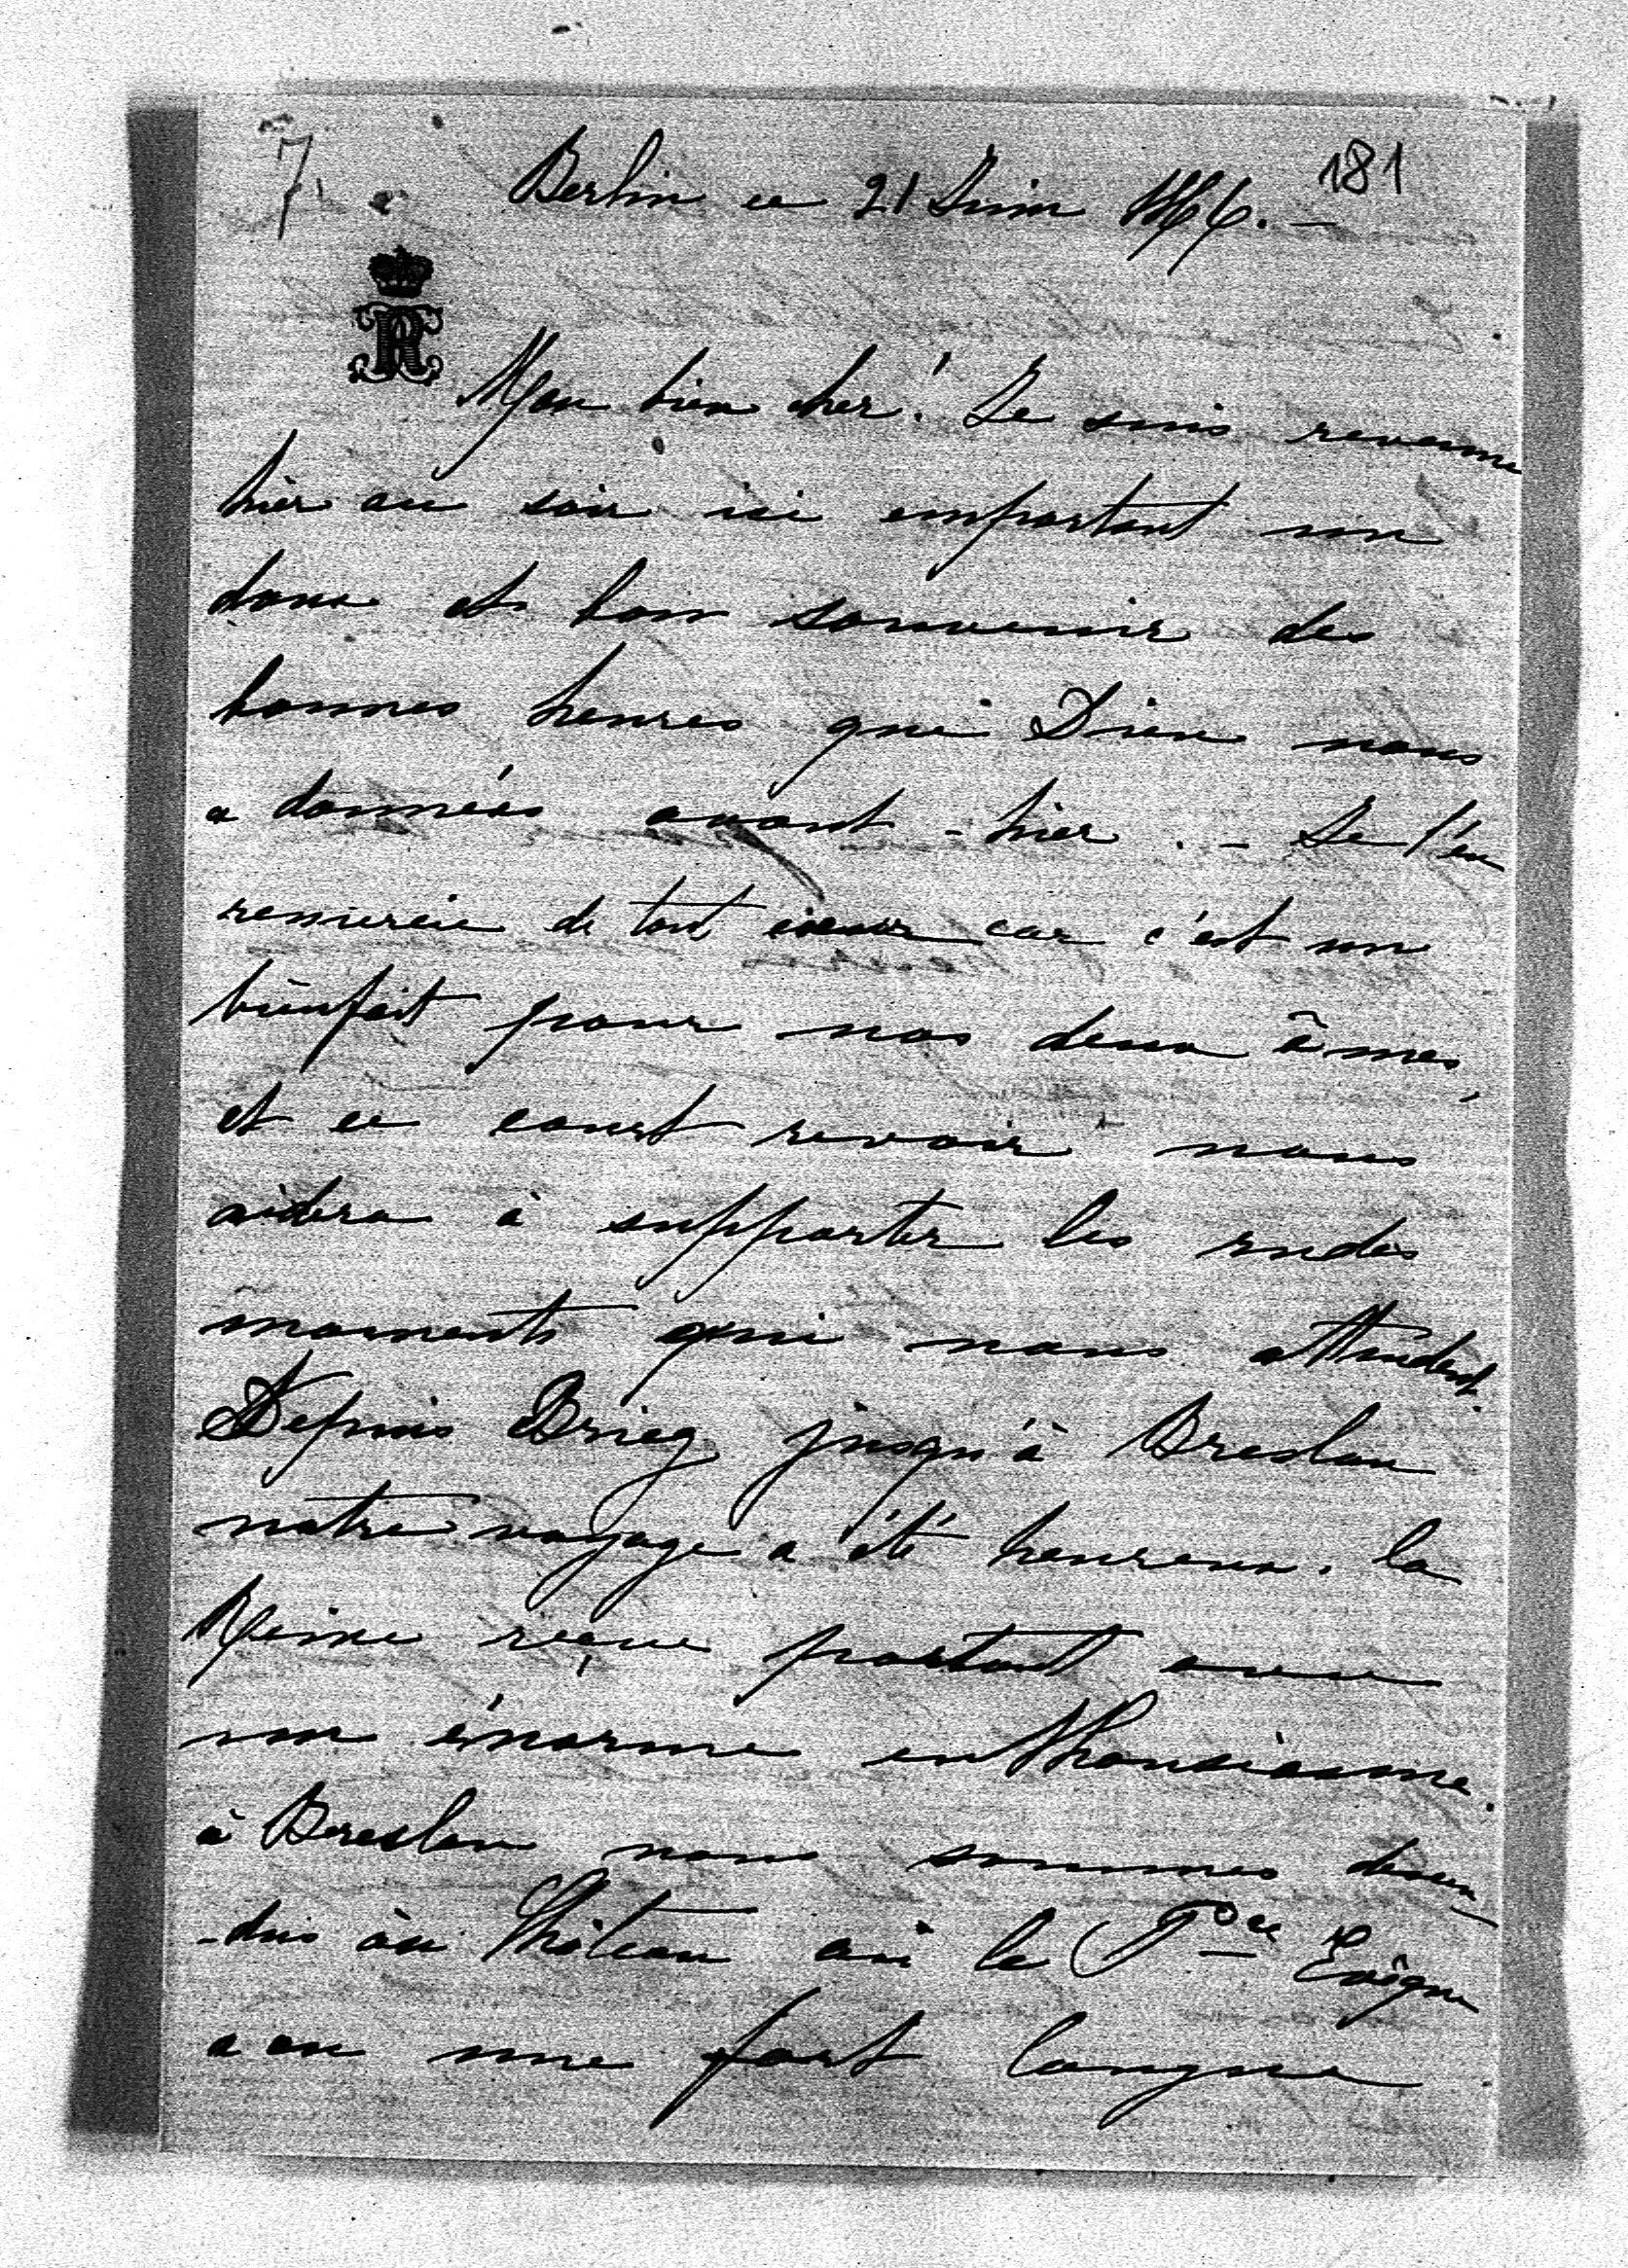 7
181
Berlin ce 21 Juin 1866. –
R
Mon bien cher! Je suis revenue
hier au soir ici emportant un
doux et bon souvenir des
bonnes heures que Dieu nous
a données avant-hier. – Je l'en
remercie de tout coeur car c'est un
bienfait pour nos deux âmes,
et ce court revoir nous
aidera à supporter les rudes
moments qui nous attendent.
Depuis Brieg jusqu'à Breslau
notre voyage a été heureux. la
Reine reçue partout avec
un énorme enthousiasme.
à Breslau nous sommes descen-
-dus au Château où le Pce Evêque
a eu une fort longue